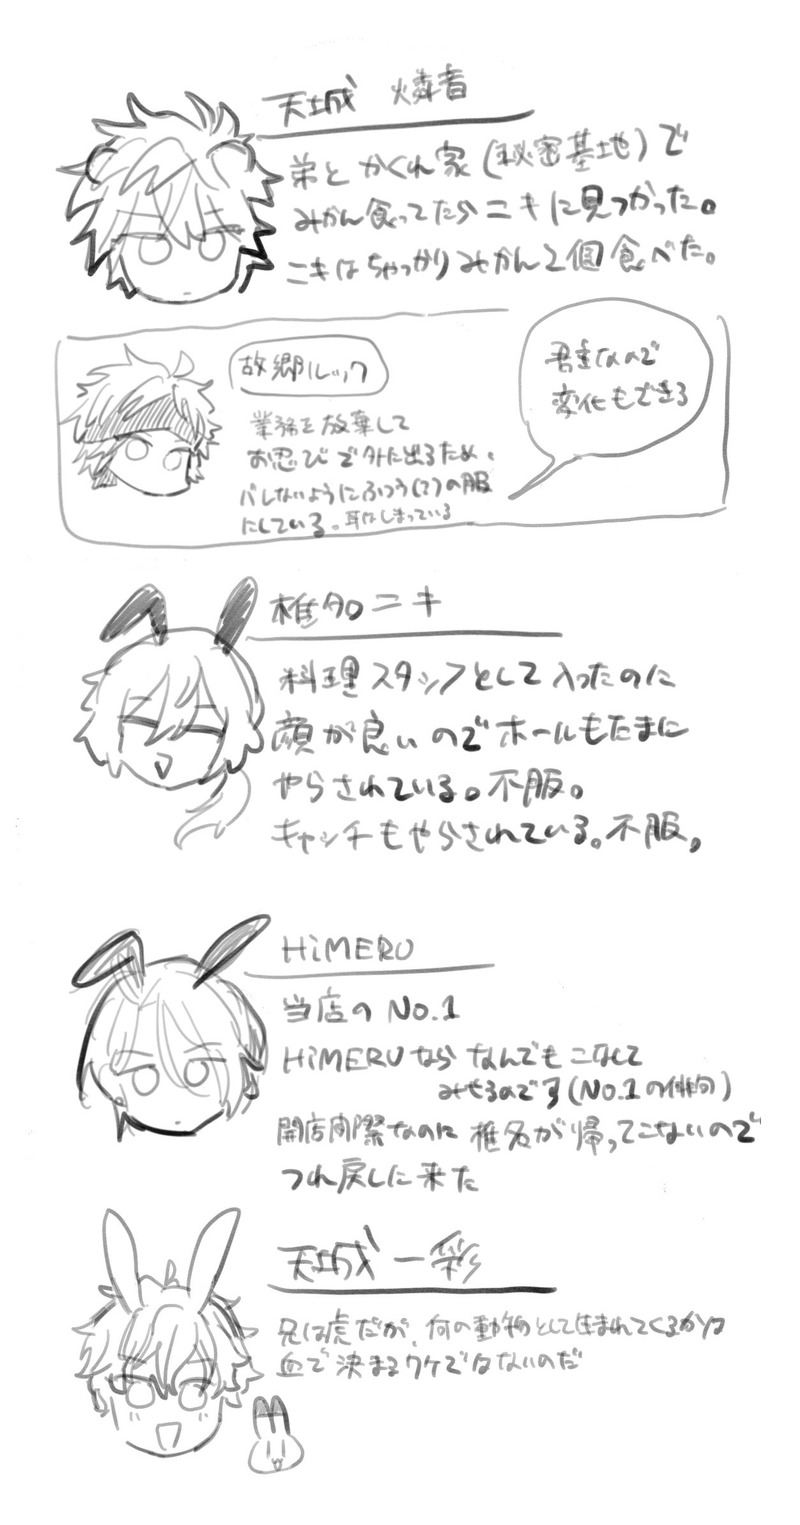 天城 燐音
弟とかくれ家(秘密基地)で
みかん食ってたらニキに見つかった。
ニキはちゃっかりみかん2個食べた。
故郷ルック
君主なので
変化もできる
業務を放棄して
お忍びで外に出るため、
バレないようにふつう(?)の服
にしている。耳はしまっている
椎名ニキ
料理スタッフとして入ったのに
顔が良いのでホールもたまに
やらされている。不服。
キャッチもやらされている。不服。
HiMERU
当店のNo.1
HiMERUならなんでもこなして
みせるのです(No.1の俳句)
開店間際なのに椎名が帰ってこないので
つれ戻しに来た
天城一彩
兄は虎だが、何の動物として生まれてくるかは
血で決まるワケではないのだ